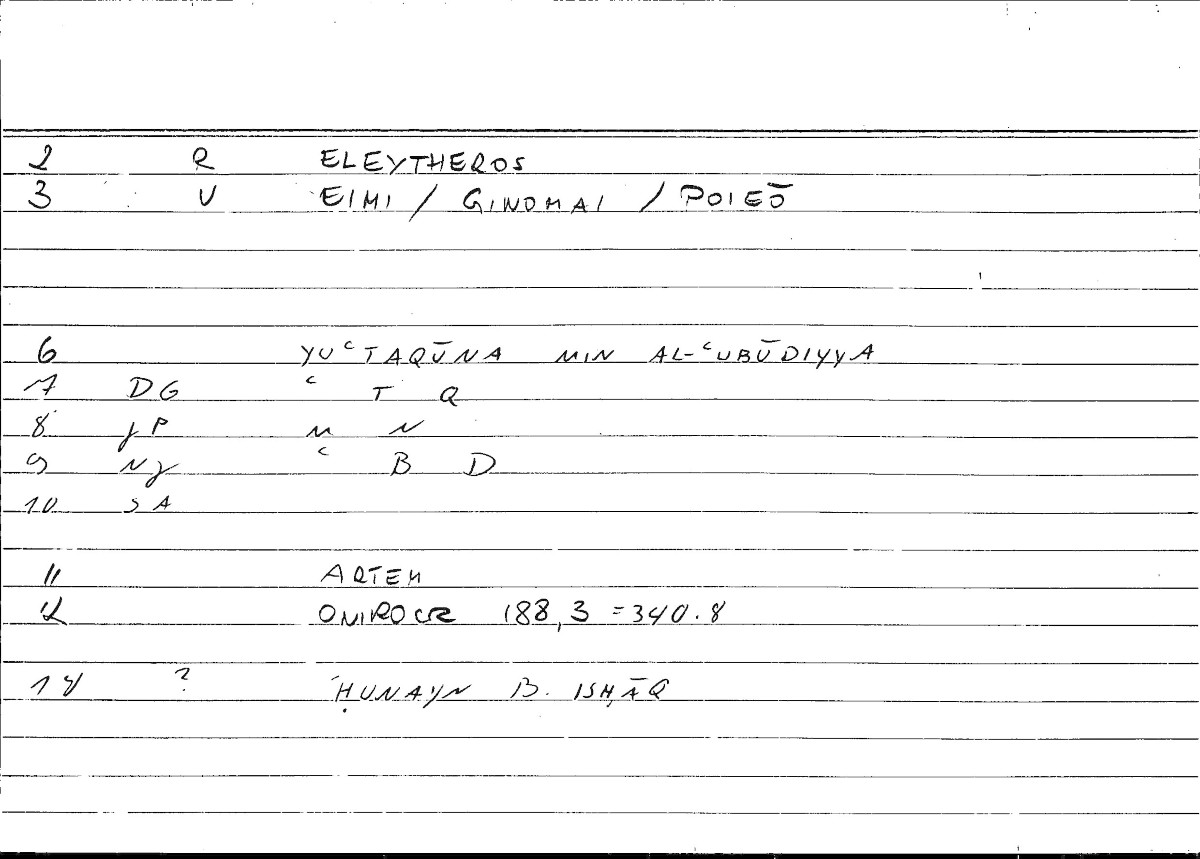 2 R ELEYTHEROS
3 V EIMI / GINOMAI / POIEŌ
6 YUʿTAQŪNA MIN AL-ʿUBŪDIYYA
7 DG ʿ T Q
8 JP M N
9 NJ ʿ B D
10 SA
11 ARTEM
12 ONIROCR 188,3 = 340.8
18 ? ḤUNAYN B. ISḤĀQ